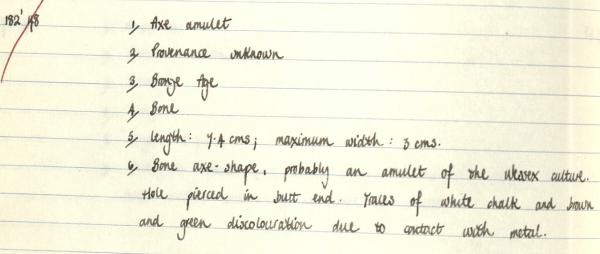 182'48
1, Axe amulet
2, Provenance unknown
3, Bronze Age
4, Bone
5, length: 7.4 cms; maximum width: 3 cms.
6, Bone axe-shape, probably an amulet of the Wessex culture.
Hole pierced in butt end. Traces of white chalk and brown
and green discolouration due to contact with metal.